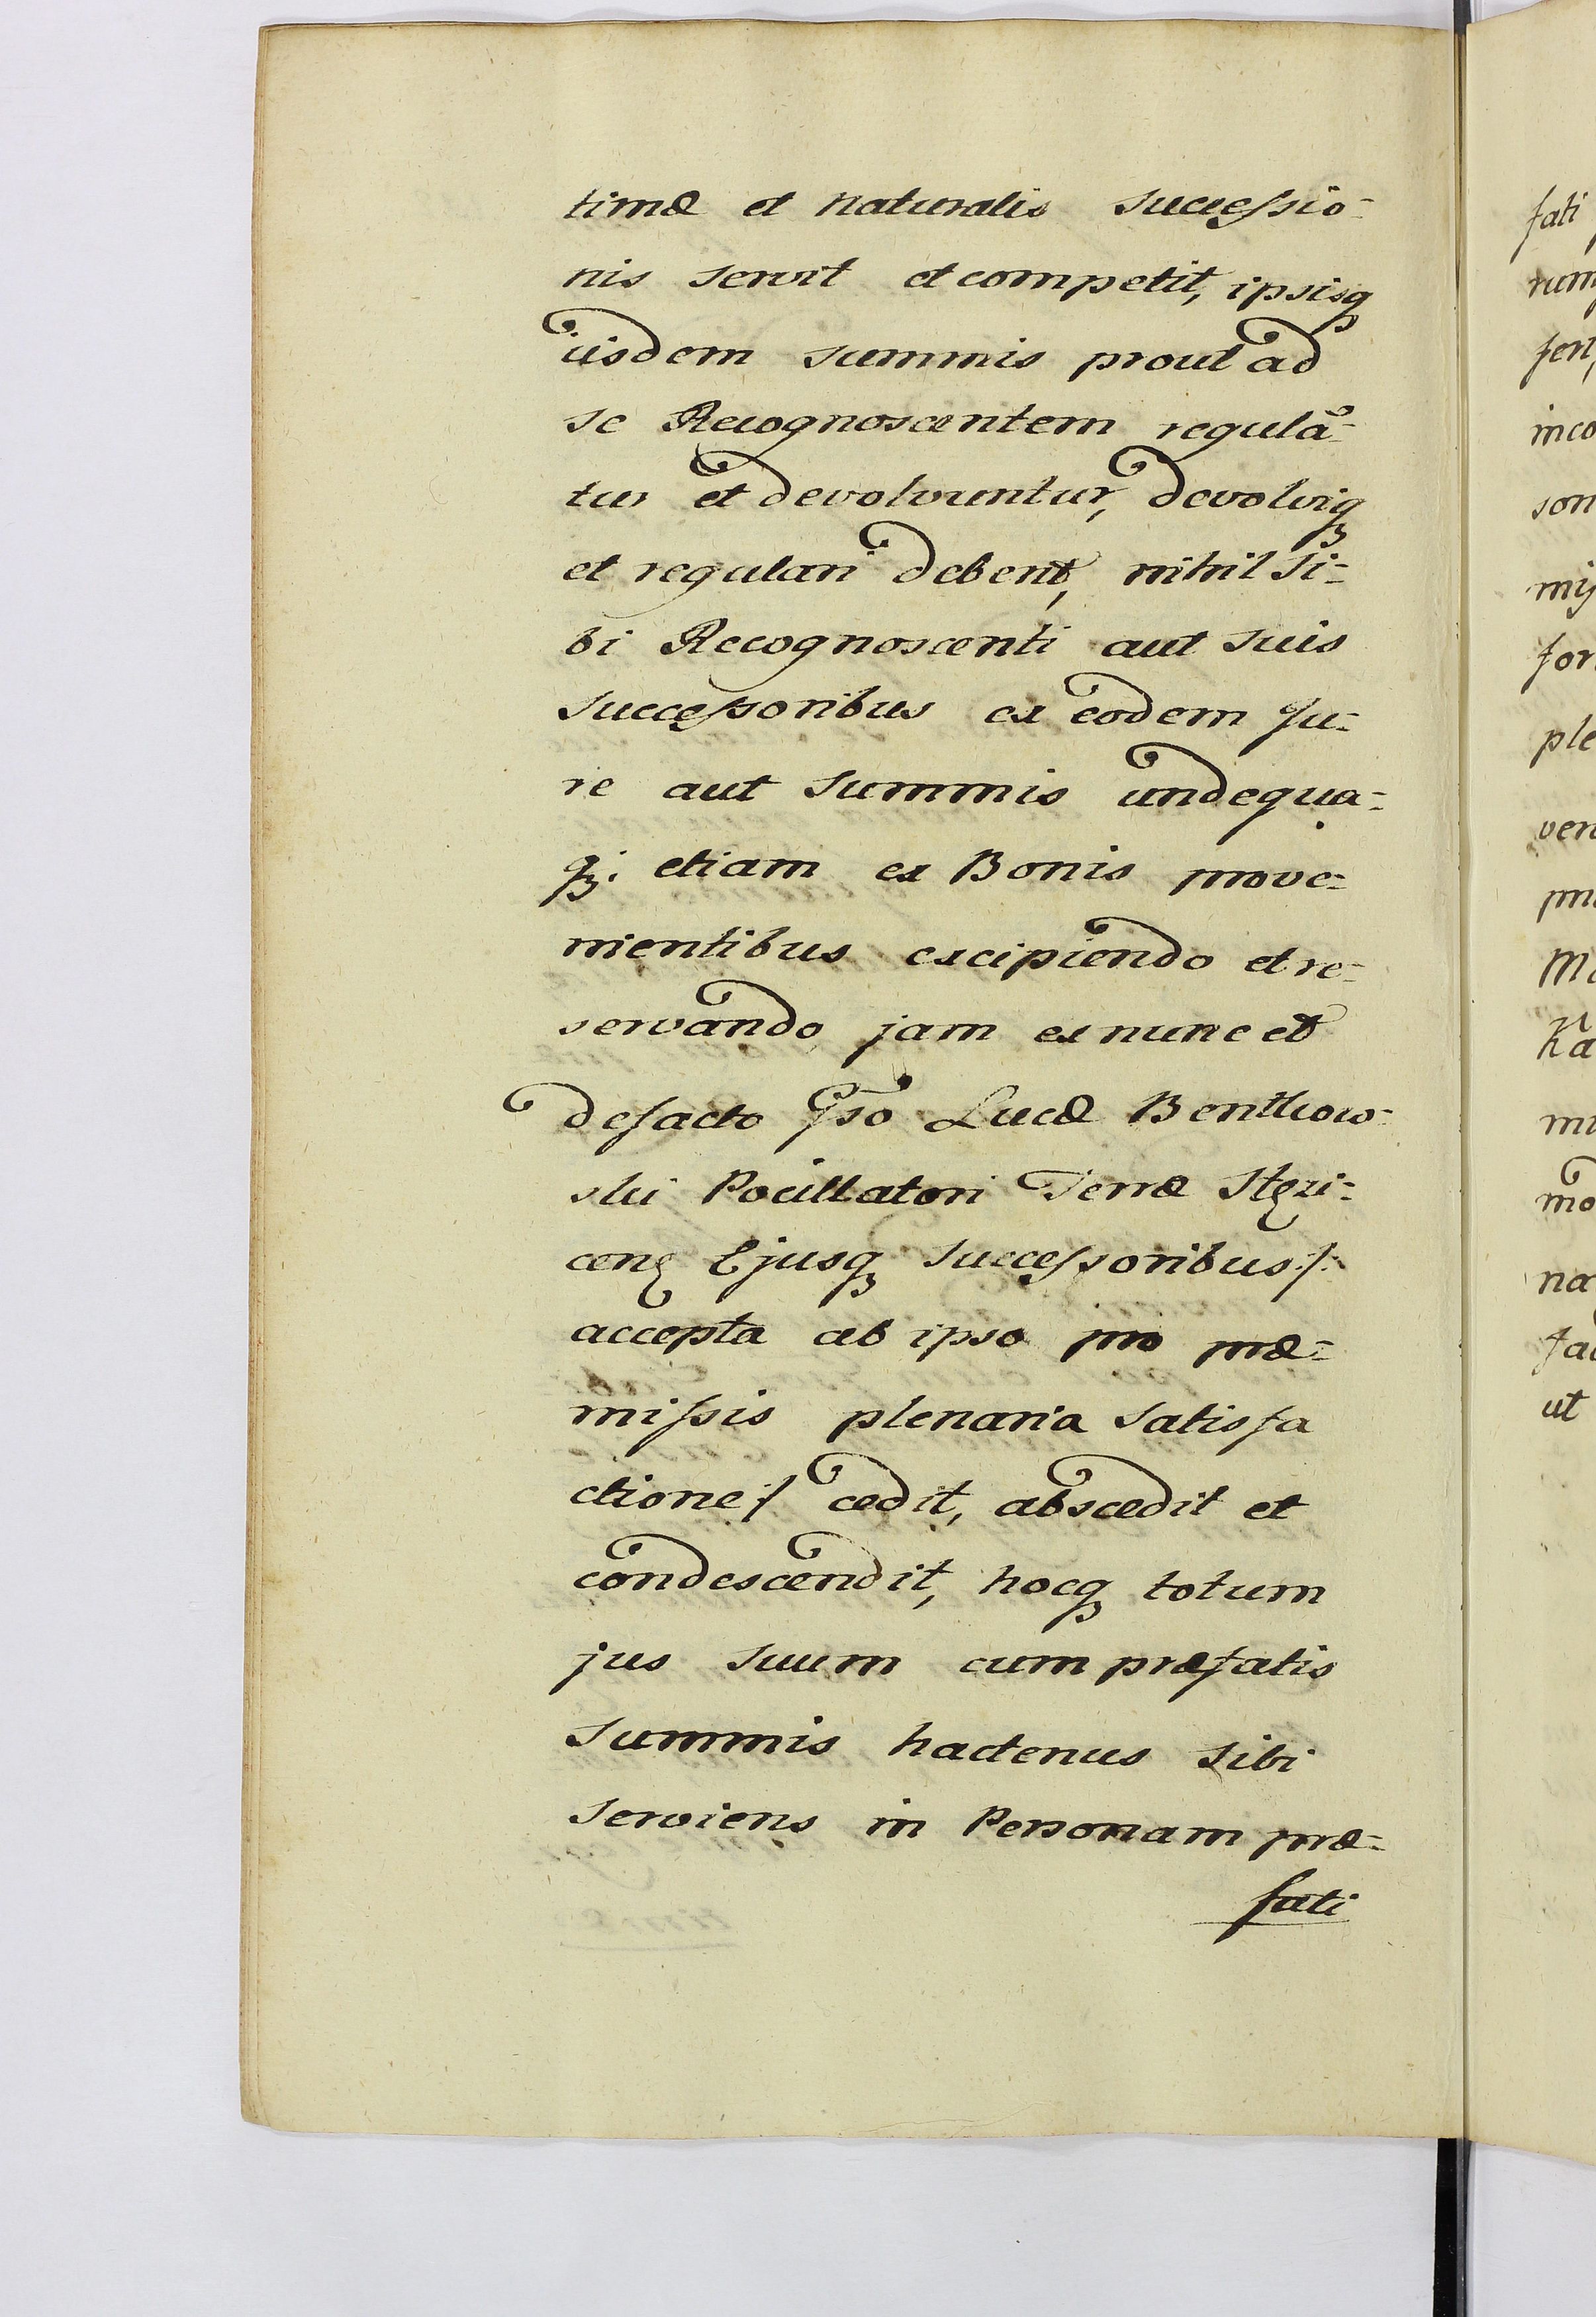 timæ et naturalis Successio-
nis servit et competit, ipsisq
iisdem summis prout ad
se Recognoscentem regulã-
tur et devolvuntur, devolviq
et regulari debent, nihil si-
bi Recognoscenti aut suis
successoribus ex eodem Ju-
re aut Summis undequa-
q; etiam ex Bonis prove-
nientibus excipiendo et re-
servando jam ex nunc et
defacto Gso Lucæ Bentkow-
ski Pocillatori Terræ Stęzi-
cens Ejusq successoribus /:
accepta ab ipso pro præ-
missis plenaria Satisfa
ctione :/ cedit, abscedit et
condescendit, hocq totum
jus suum cum præfatis
Summis hactenus sibi
Serviens in Personam præ-
fati
fati
inco
ple
na
ut